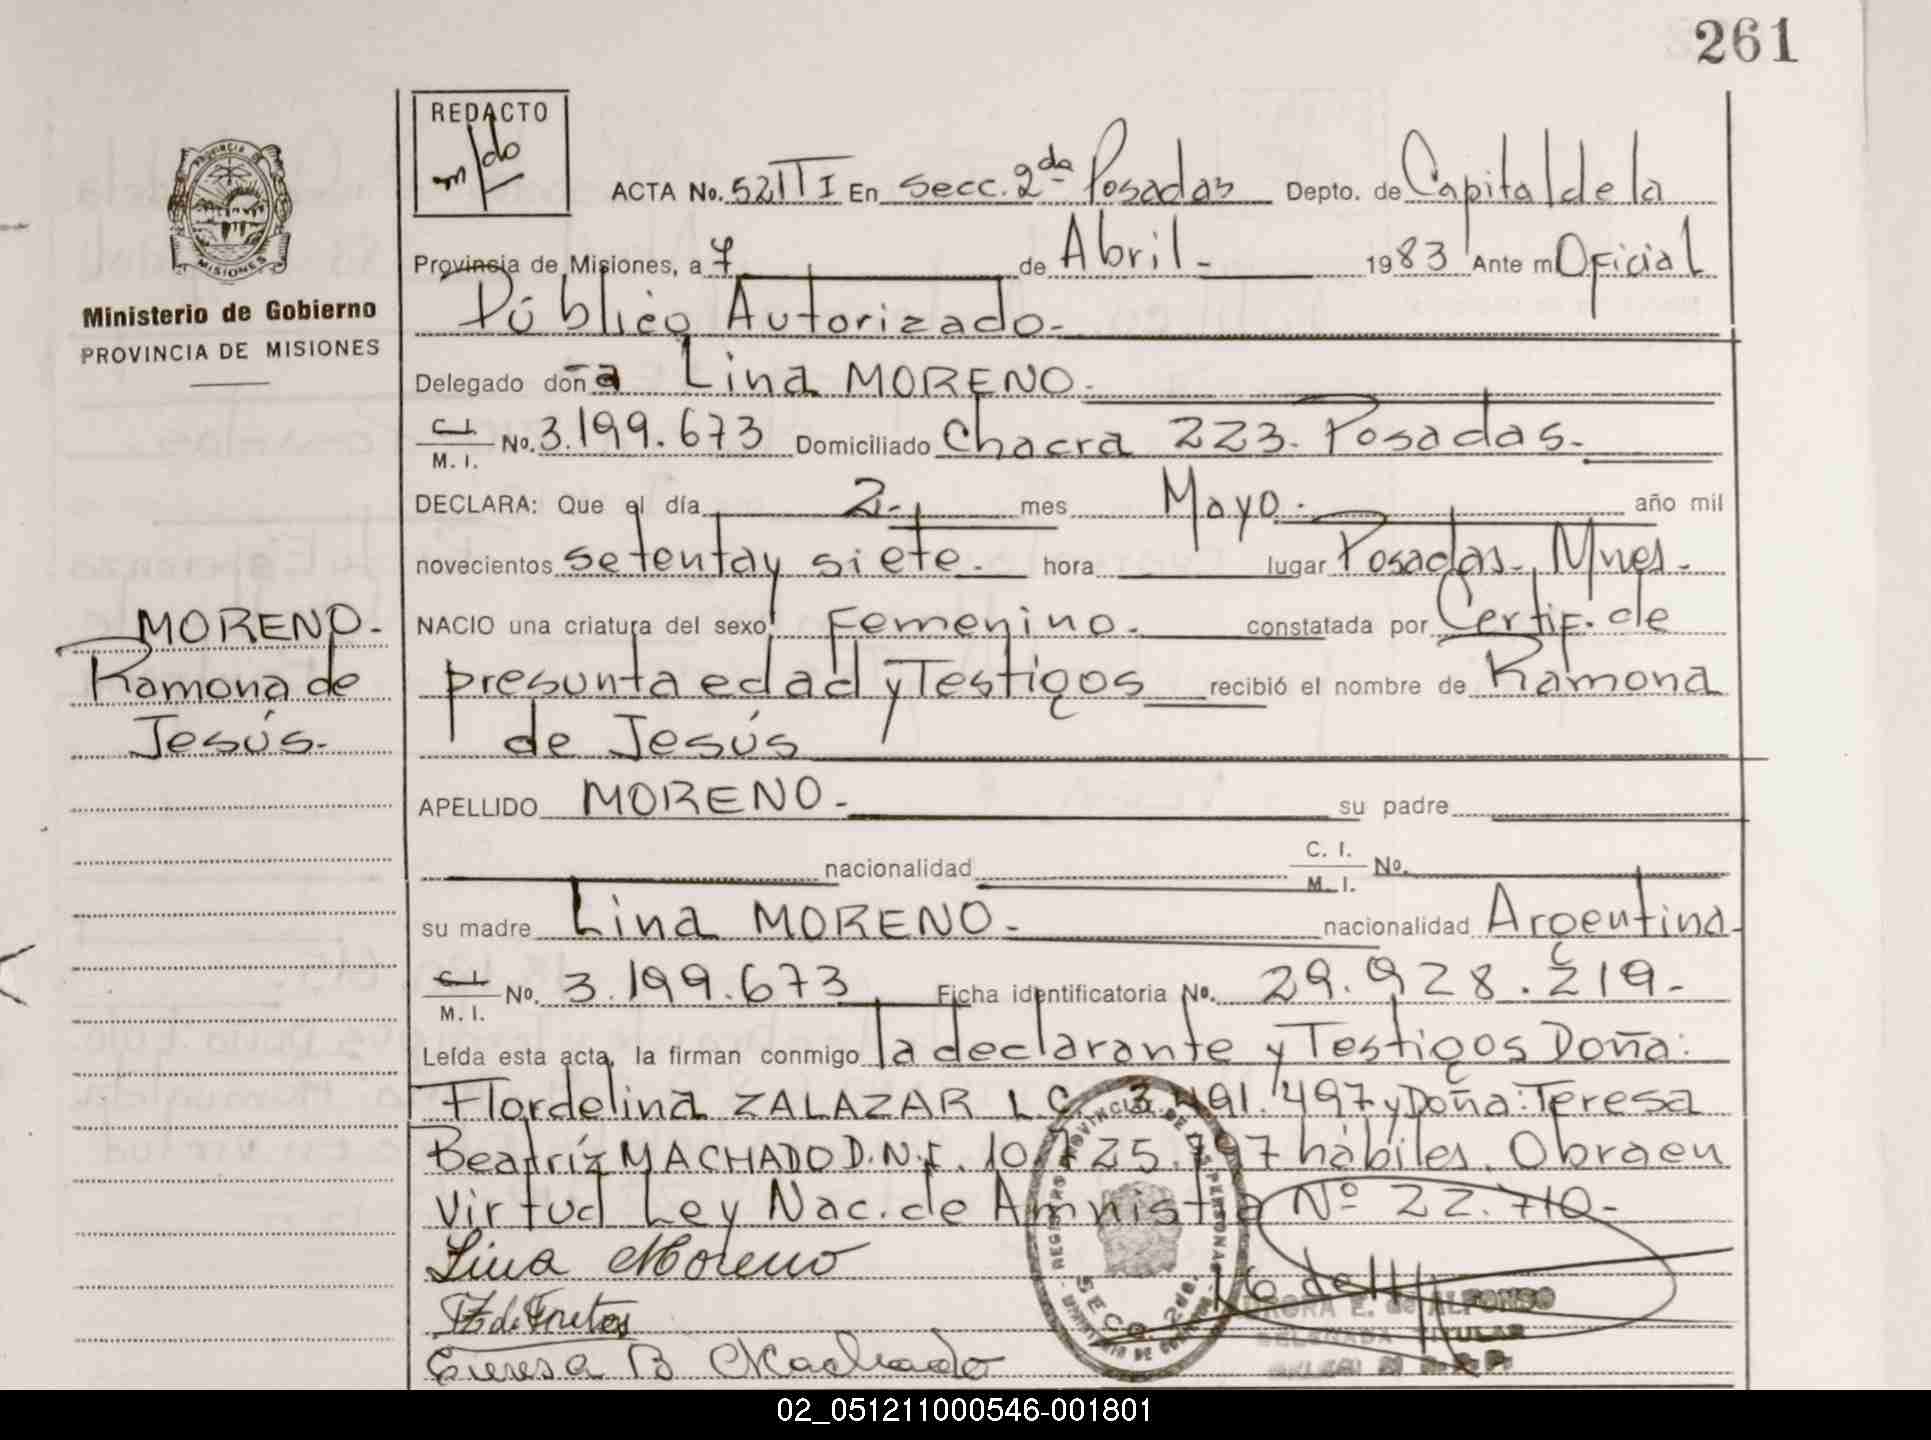 261
REDACTO
PROVINCIA DE
MISIONES
Ministerio de Gobierno
PROVINCIA DE MISIONES
ACTA No. 521 TI En Secc. 2da Posadas Depto. de Capital de la
Provincia de Misiones, a 7 de Abril - 1983 Ante mi Oficial
Público Autorizado.-
Delegado doña Lina MORENO.-
C.I. M. I. No. 3.199.673 Domiciliado Chacra 223. Posadas.-
DECLARA: Que el día 2.- mes Mayo.- año mil
novecientos setenta y siete.- hora lugar Posadas. Mnes.-
NACIO una criatura del sexo Femenino.- constatada por Certif. de
presunta edad y Testigos recibió el nombre de Ramona
de Jesús
MORENO.-
Ramona de
Jesús.-
APELLIDO MORENO.- su padre
nacionalidad C. I. M. I. No.
su madre Lina MORENO.- nacionalidad Argentina-
C.I. M. I. No. 3.199.673 Ficha identificatoria No. 29.928.219.-
Leída esta acta, la firman conmigo la declarante y Testigos Doña:
Flordelina ZALAZAR L.C. 3.491.497 y Doña: Teresa
Beatríz MACHADO D.N.I. 10.725.797 hábiles. Obra en
virtud Ley Nac. de Amnistía Nº 22.710-
Lina Moreno
Z de Fretes
Teresa B Machado
REGISTRO PROVINCIAL DE LAS PERSONAS
SECC. 2da.
AURORA E. de ALFONSO
DELEGADA TITULAR
02_051211000546-001801